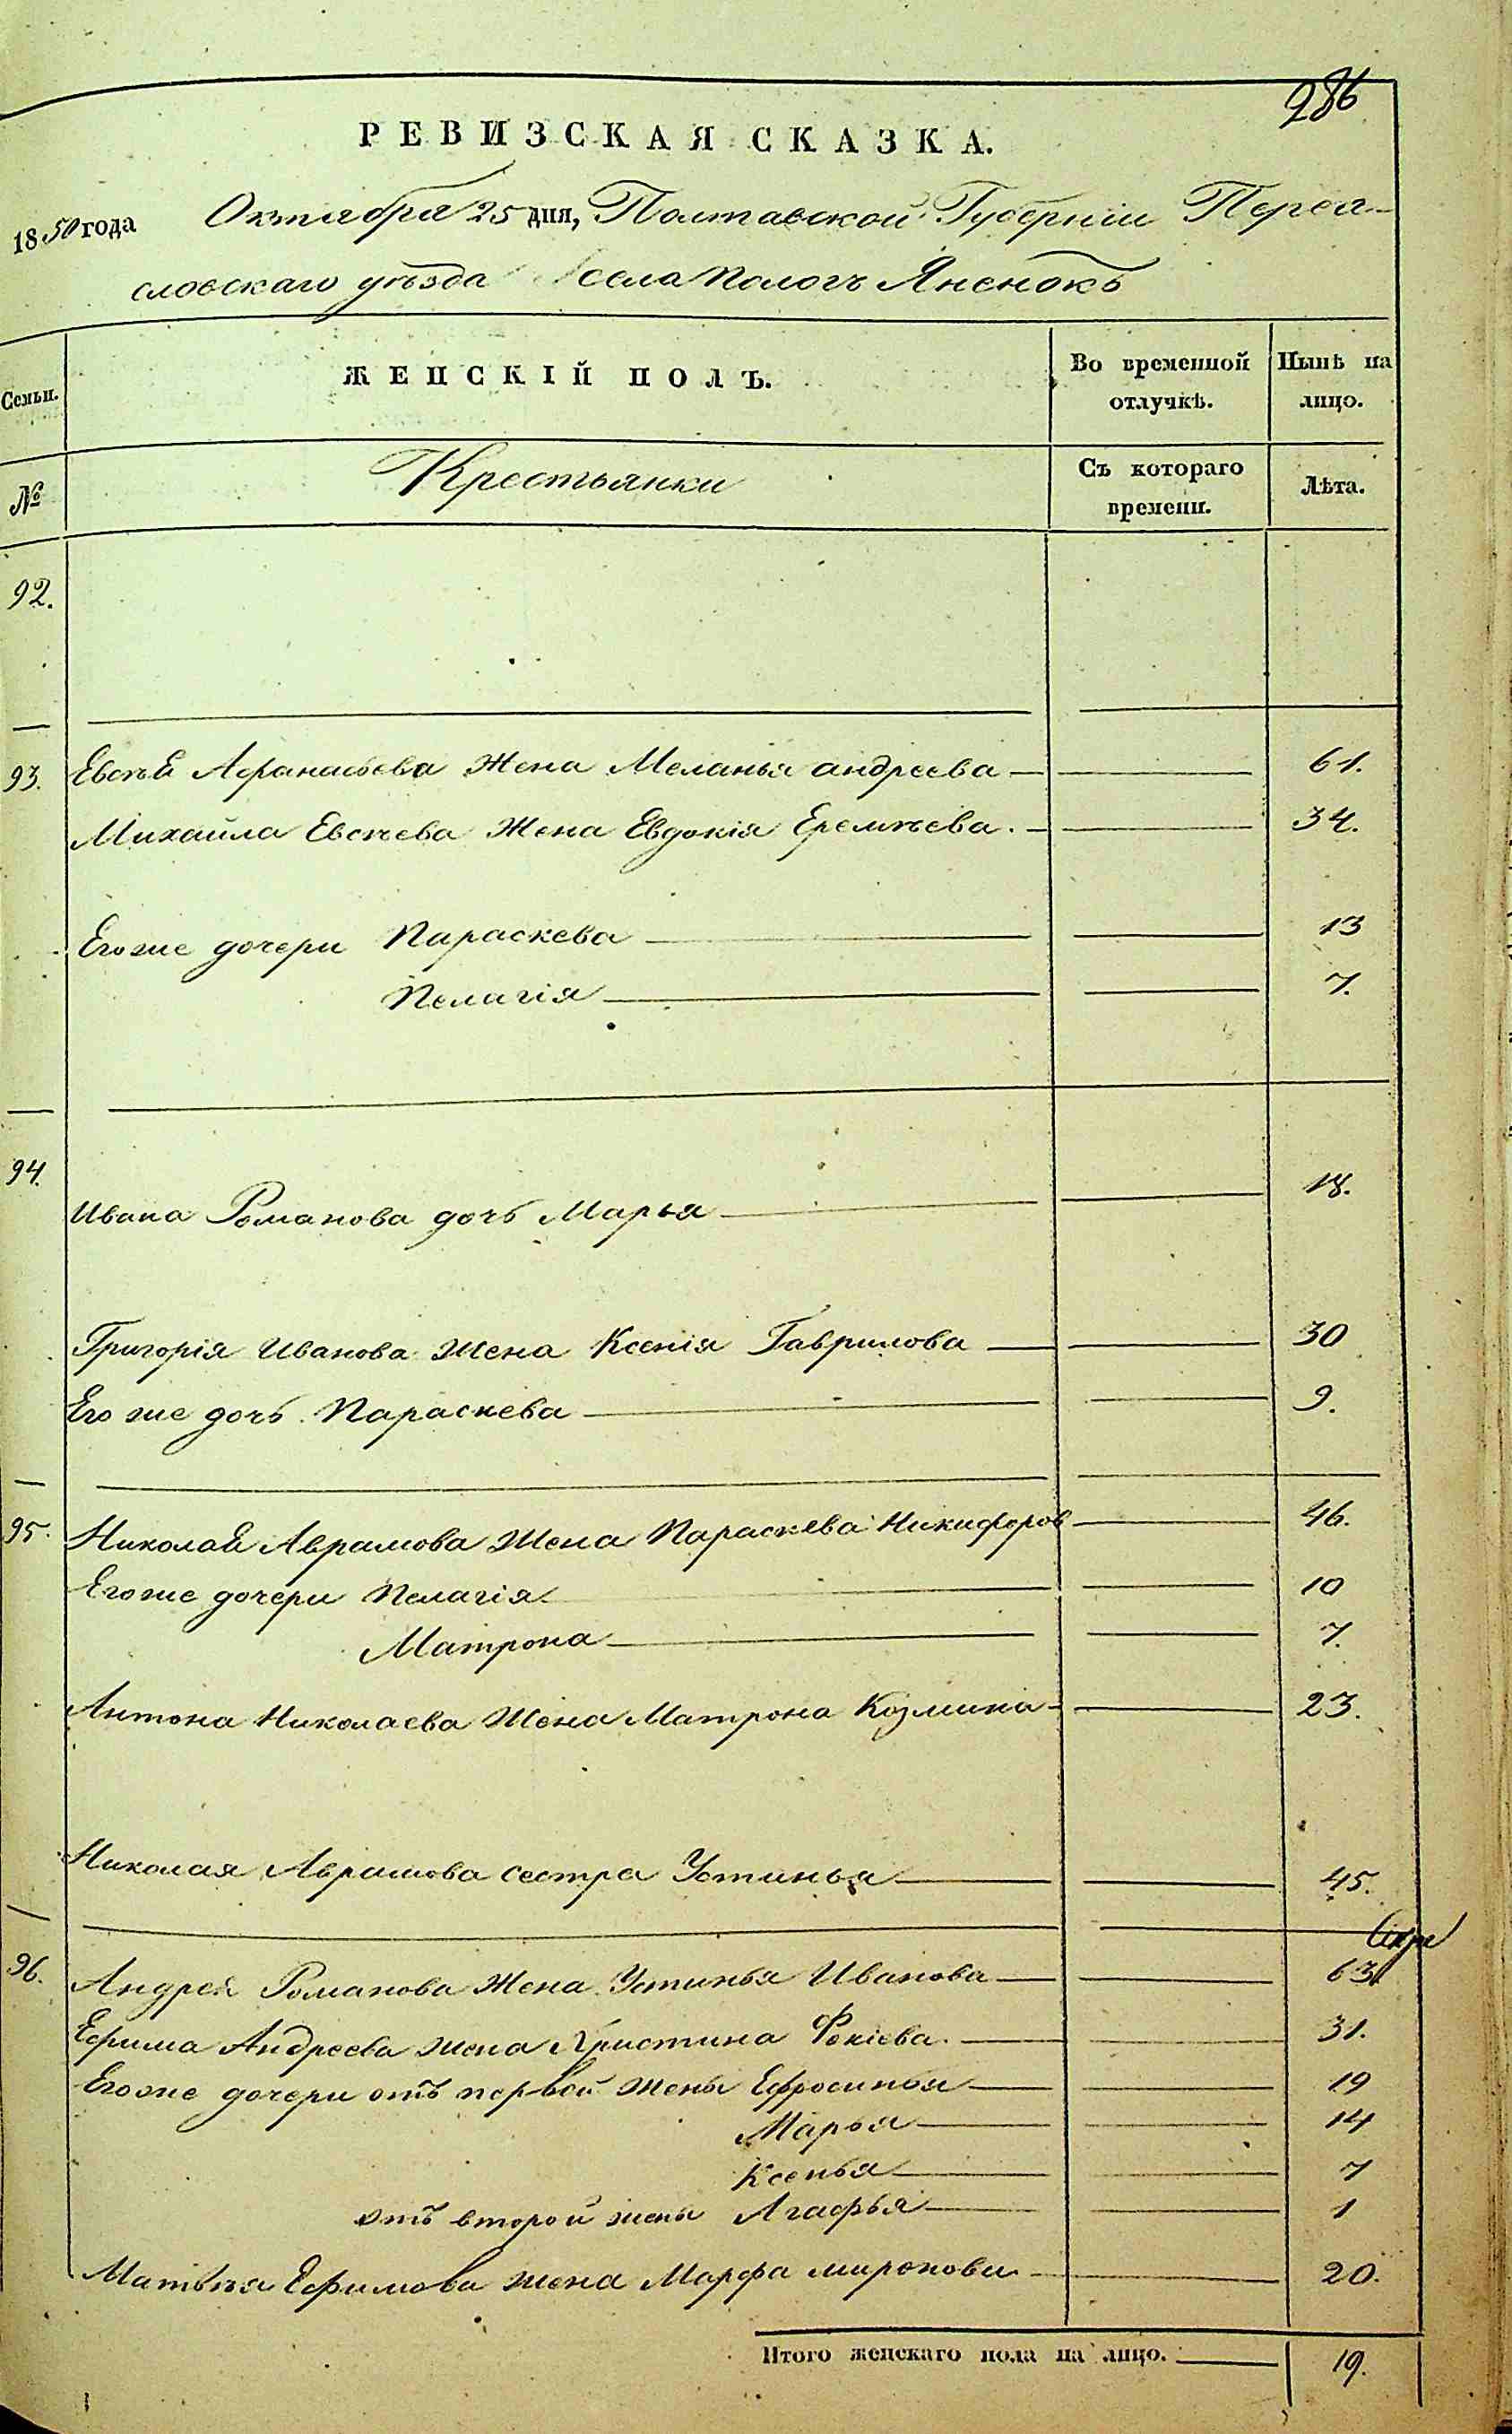 286
РЕВИЗСКАЯ СКАЗКА.
1850 года Октября 25 дня, Полтавской Губерніи Перея-
словскаго уѣзда села Пологъ Яненокъ
Семьи. ЖЕНСКІЙ ПОЛЪ. Во временной отлучкѣ. Нынѣ на лицо.
№ Крестьянки Съ котораго времени. Лѣта.
92.
93. Евсѣй Афанасьева Жена Меланья андреева 61.
Михайла Евсѣева Жена Евдокія Еремѣева. 34.
Егоже дочери Параскева 13
Пелагія 7.
94. Ивана Романова дочь Марья 18.
Григорія Иванова жена Ксенія Гаврилова 30
Его же дочь Параскева 9.
95. Николай Аврамова жена Параскева Никифоров 46.
Егоже дочери Пелагія 10
Матрона 7.
Антона Николаева жена Матрона Козмина 23.
Николая Аврамова сестра Устинья 45.
96. Андрей Романова Жена Устинья Иванова 63
Ефима Андреева жена Христина Фокіева. 31.
Егоже дочери отъ первой жены Ефросинья 19
Марья 14
Ксенья 7
отъ второй жены Агафья 1
Матвѣя Ефимова жена Марфа миронова 20.
Итого женскаго пола на лицо. 19.